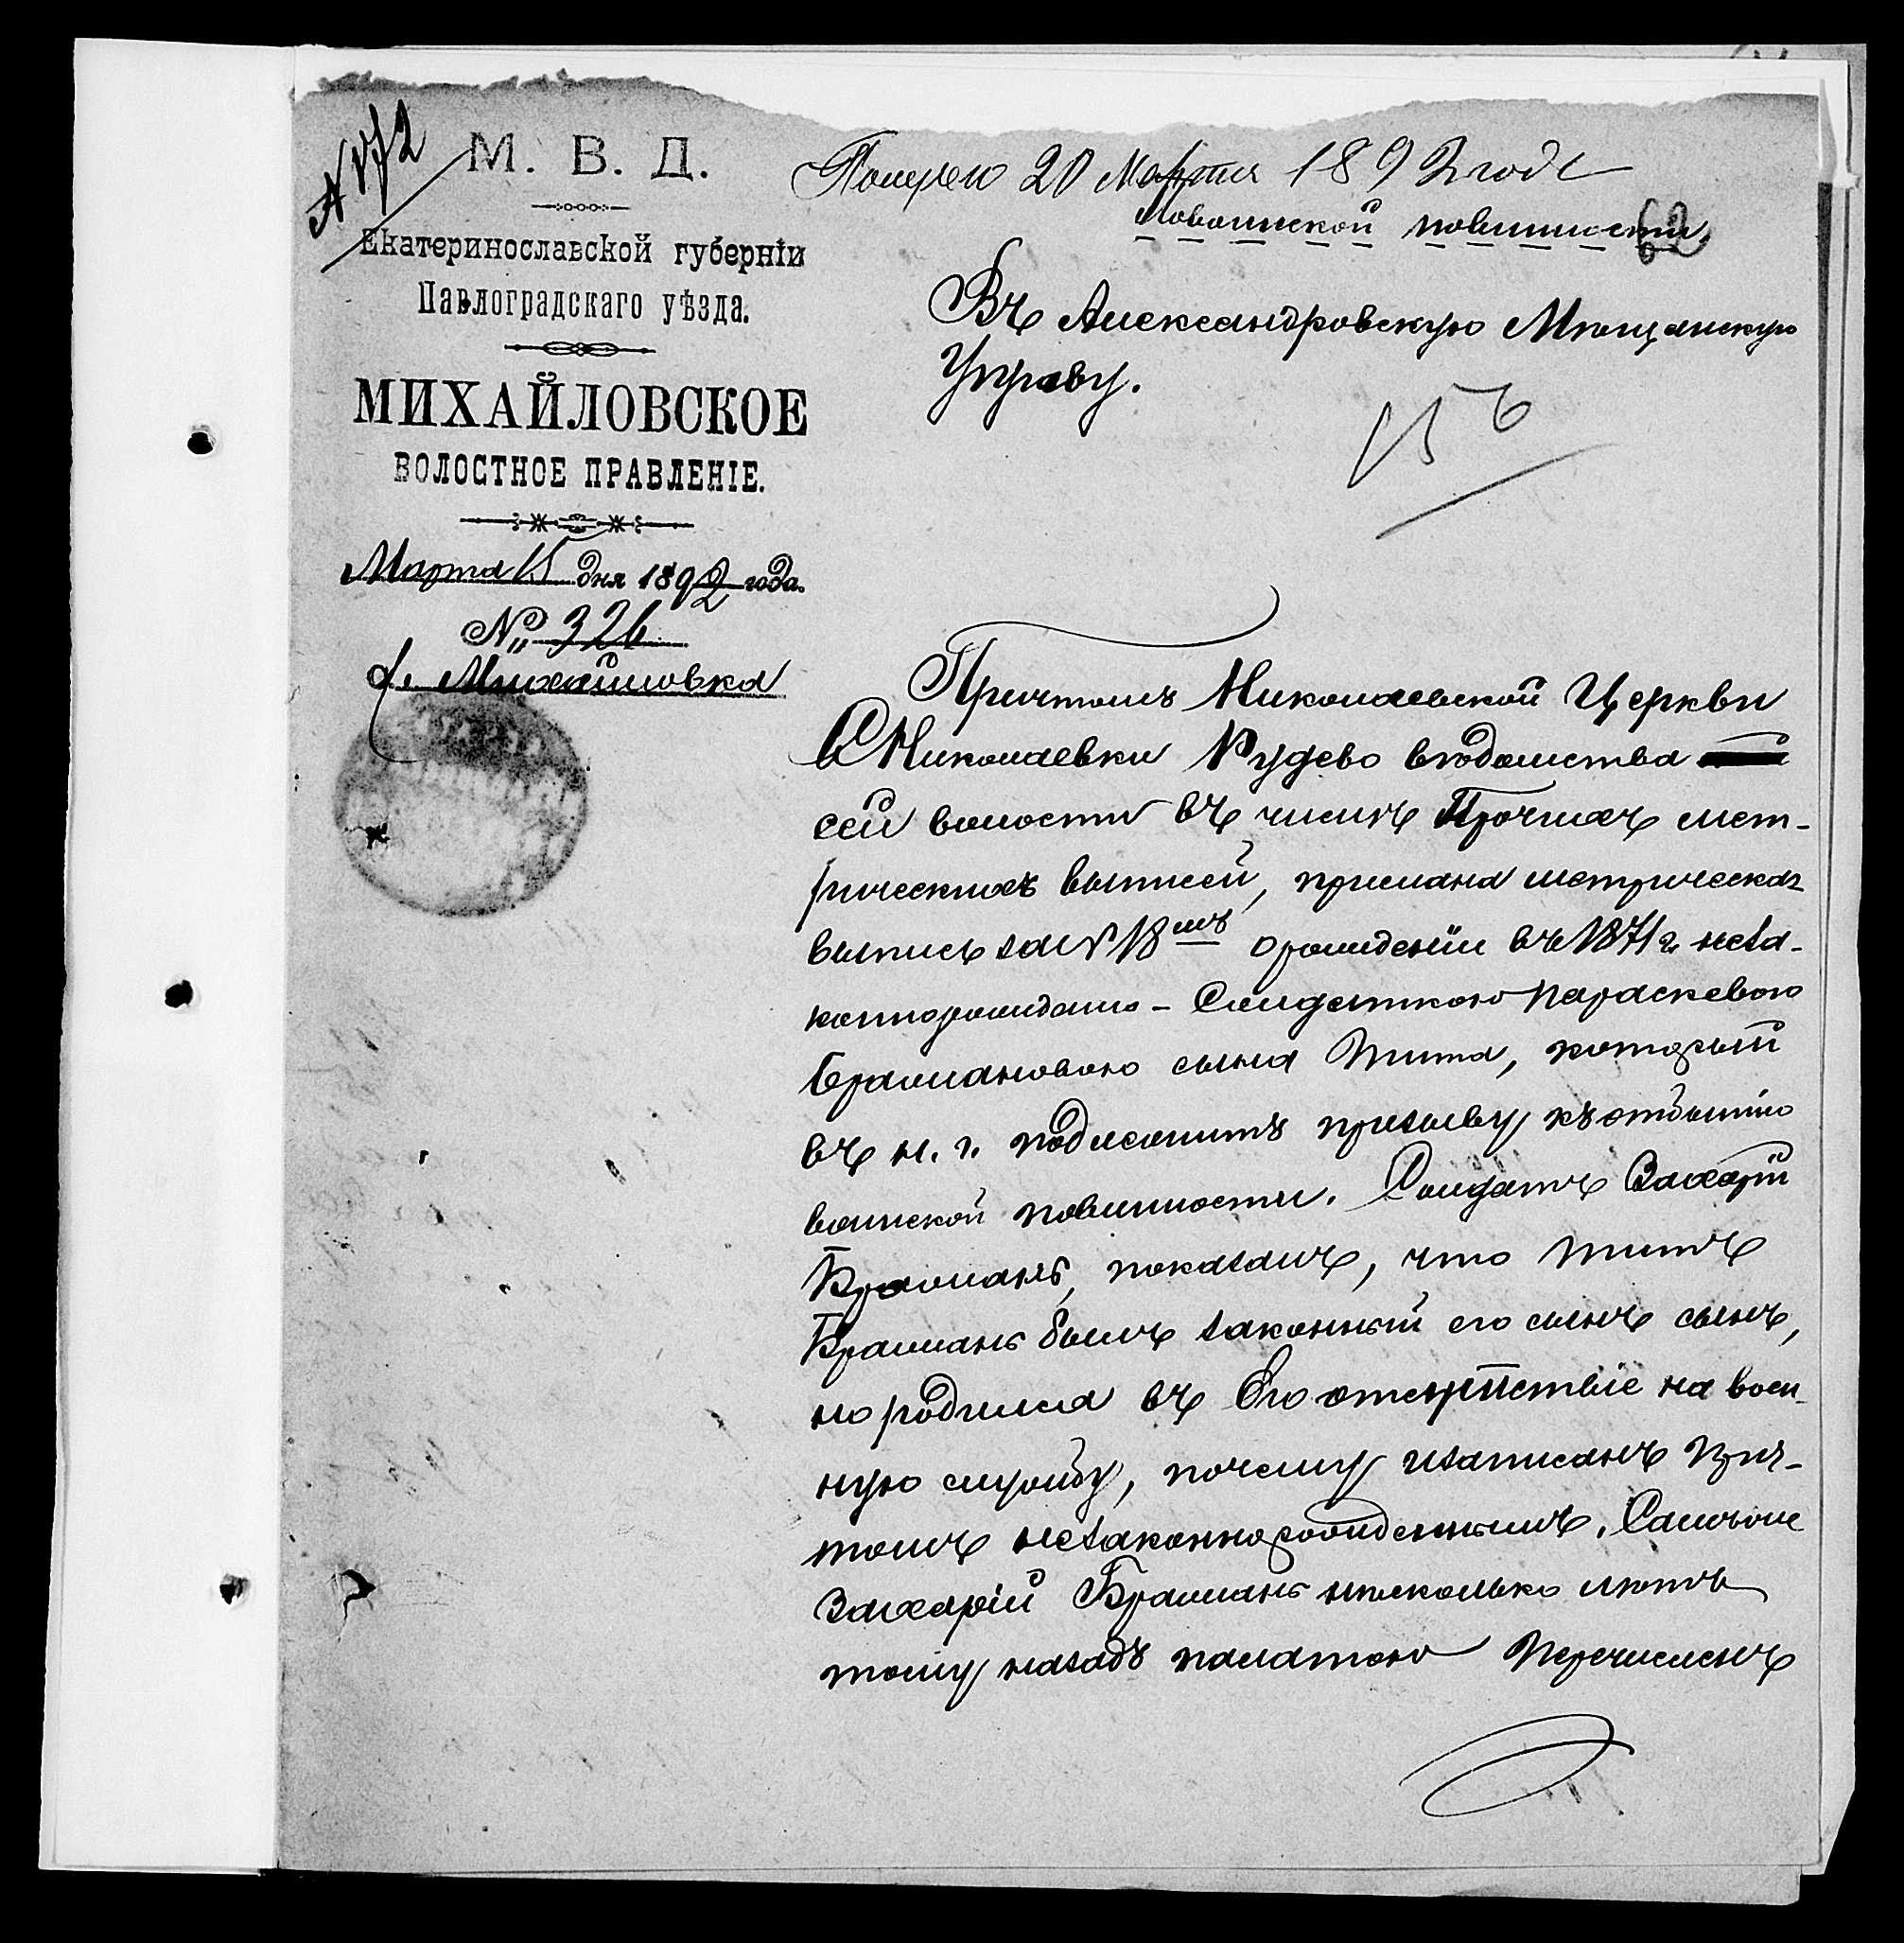 М. В. Д.
Екатеринославской губерніи
Павлоградскаго уѣзда.
МИХАЙЛОВСКОЕ
ВОЛОСТНОЕ ПРАВЛЕНІЕ.
Марта 15 дня 1892 года.
№ 326
с. Михайловка
20 Марта 1892 года
По воинской повинности
62
Въ Александровскую Мѣщанскую
Управу.
156
Причтомъ Николаевской Церкви
С Николаевки Рудево вѣдомства
сей волости въ числѣ Прочихъ мет-
рическихъ выписей, прислана метрическая
выпись за № 18мъ о рожденіи въ 1871 г. неза-
коннорожданно - Солдаткою Параскевою
Браилановою сына Тита, который
въ н. г. подлежитъ призыву къ отбытію
воинской повинности. Солдатъ Захарій
Браиланъ, показалъ, что Титъ
Браиланъ былъ законный его сынъ сынъ,
но родился въ Его отсутствіе на воен-
ную службу, почему и записанъ При-
томъ незаконнорожденнымъ. Самъ же
Захарій Браиланъ нѣсколько лѣтъ
тому назадъ палатою Перечисленъ